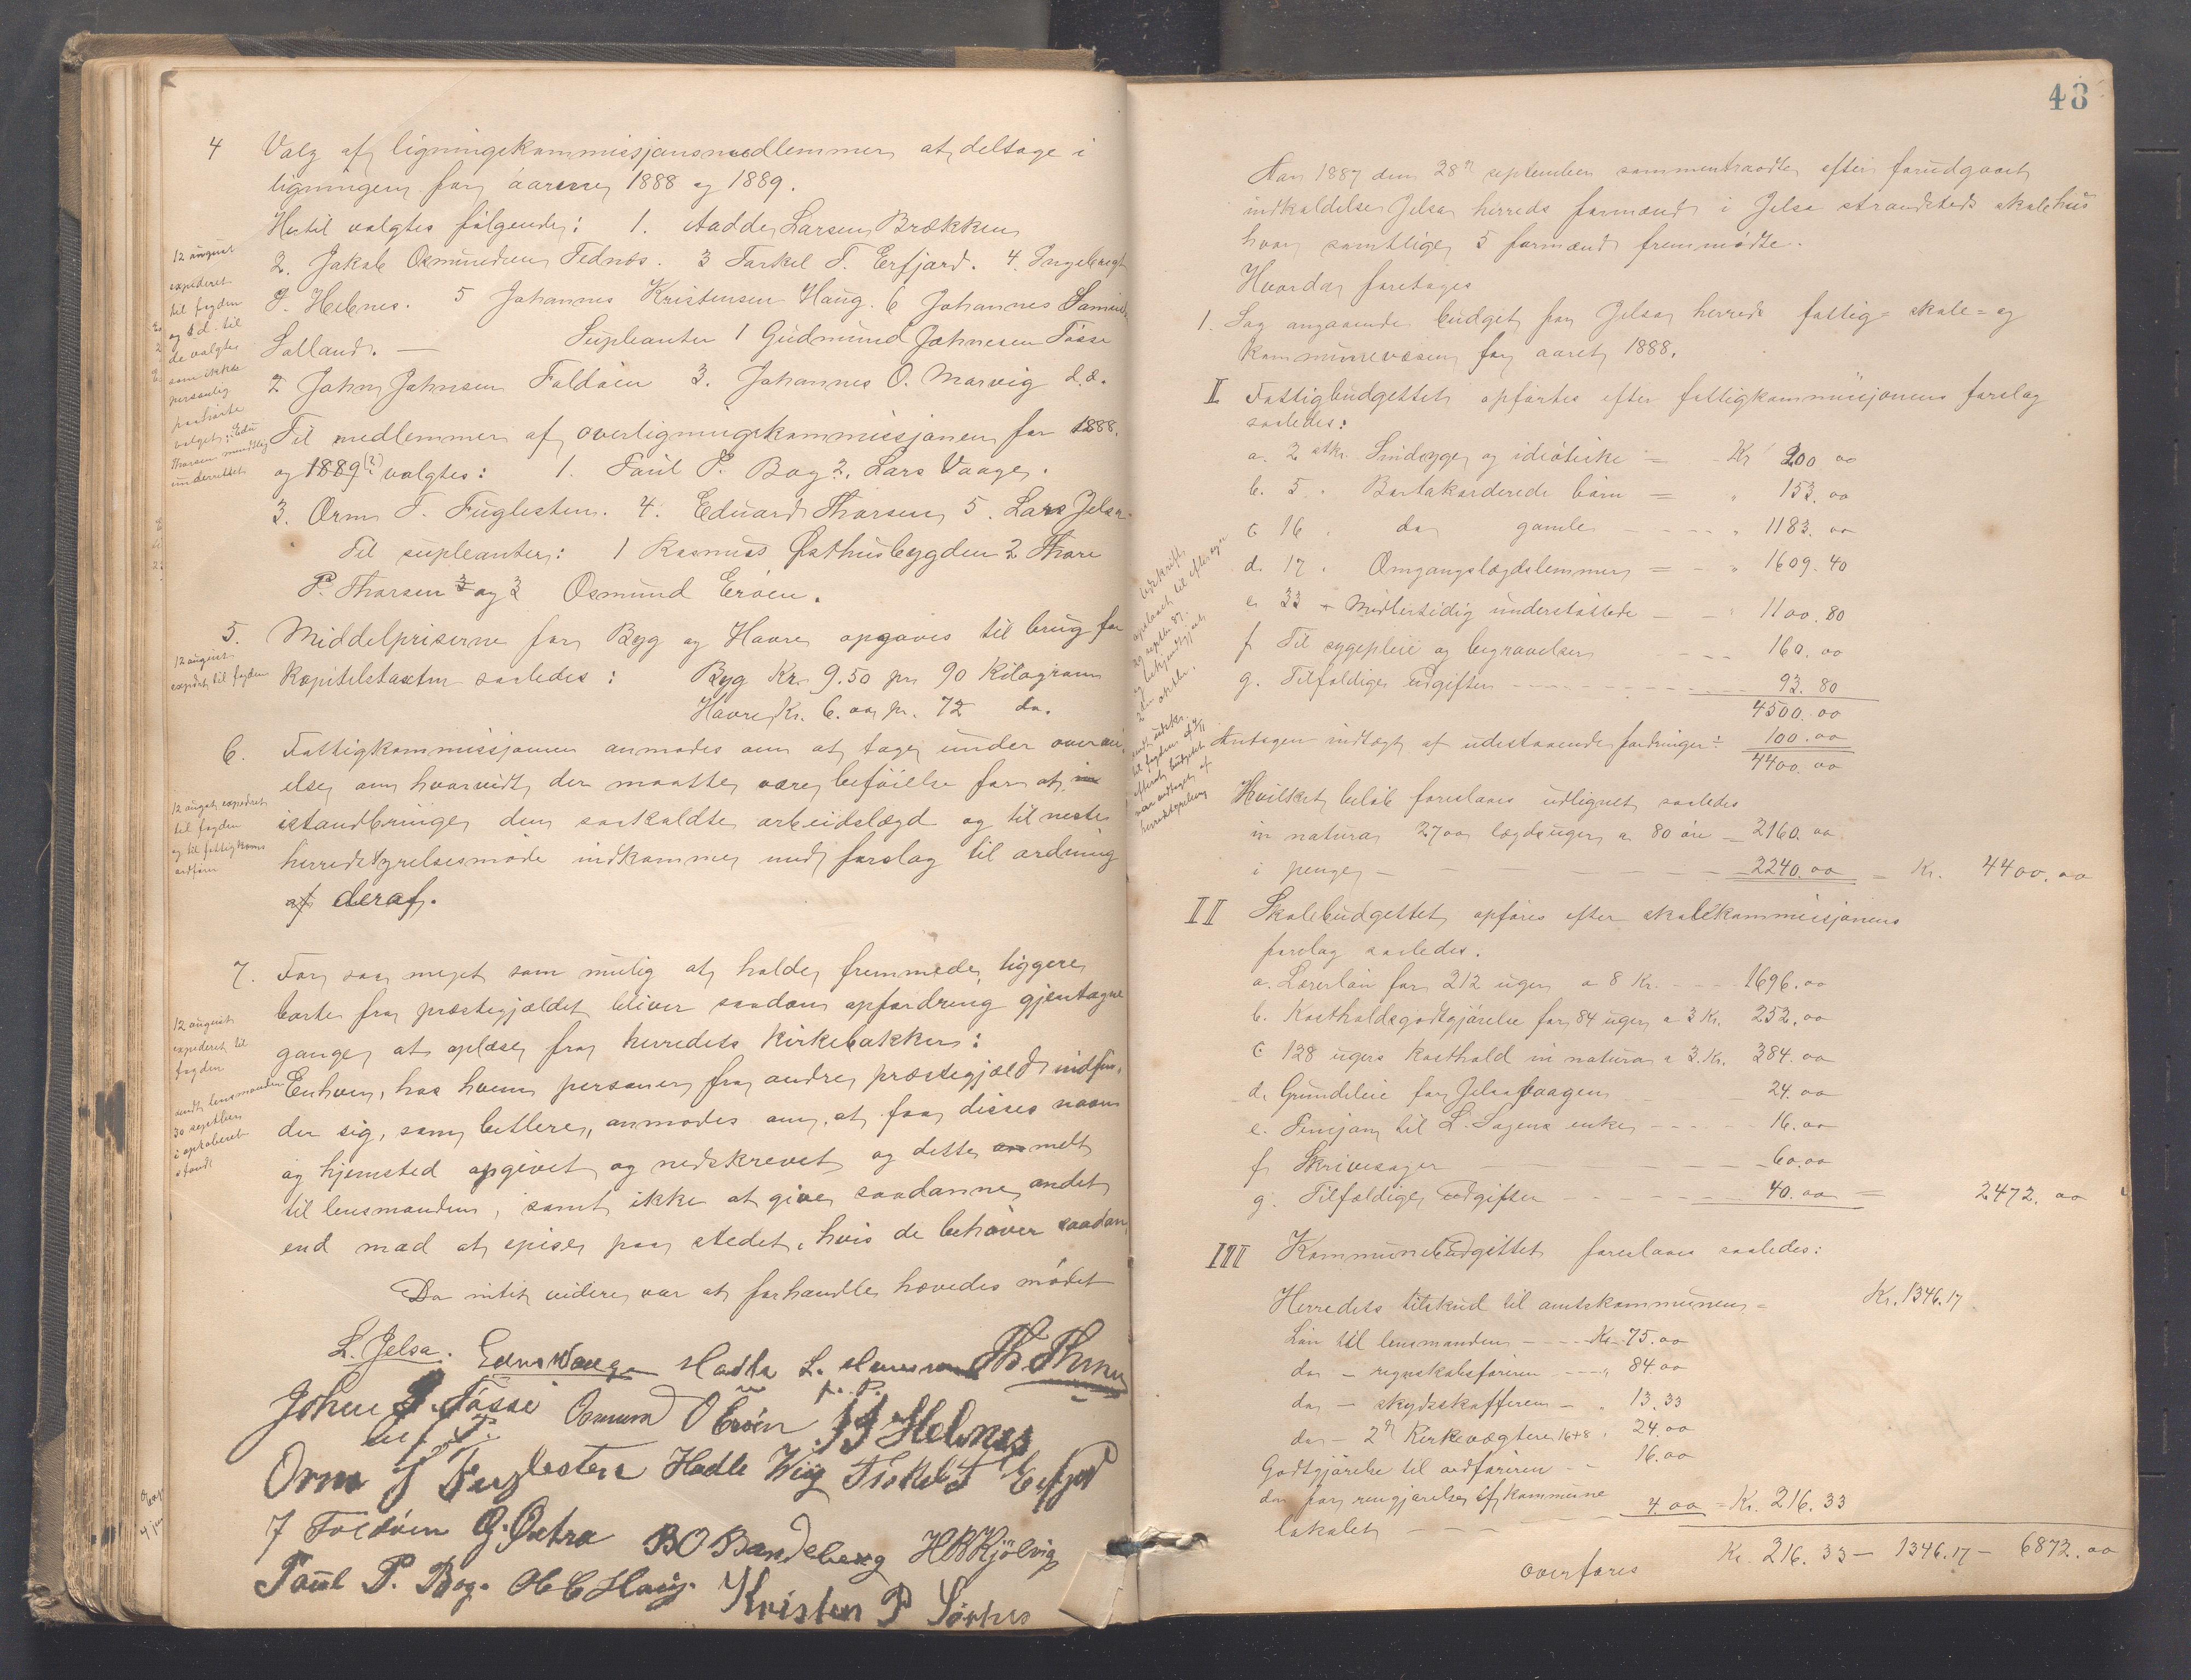 4 Valg af ligningskommissjonsmedlemmer at deltage i
ligningen for aarene 1888 og 1889.
Hertil valgtes følgende: 1. Aadde Larsen Brækken
2. Jakob Osmundsen Tednes. 3 Torkel T. Erfjord. 4. Ingebregt
J. Helgnes. 5 Johannes Kristensen Haug. 6 Johannes
Salland. — Supleanter 1 Gudmund Johnesen Fosse
2 John Johnsen Foldøen 3. Johannes O. Marvig d.æ.
Til medlemmer af overligningskommissjonen for 1888.
og 1889 valgtes: 1. Paul P. Bog 2. Lars Vaage.
3. Orm T. Fuglesten. 4. Eduard Thorsen, 5. Lars Jelsa.
Til supleanter: 1 Rasmus Østhusbygden 2 Thore
P. Thorsen og 3 Osmund Erøen.
12 august
expederet
til fogden
og til
de valgte
som ikke
personlig
paahørte
valget;
Thorsen mundtlig
underrettet
5. Middelpriserne for Byg og Havre opgaves til brug for
Kapitelstaxten saaledes: Byg Kr. 9.50 pr. 90 Kilogram
Havre Kr. 6.00 pr. 72 do.
12 august
exped. til fogden
6. Fattigkommissjonen anmodes om at tage under overvei
else om hvorvidt der maatte være beføielse for at
istandbringe den saakaldte arbeidslægd og til neste
herredstyrelsesmøde indkomme med forslag til ordning
af deraf.
12 august expederet
til fogden
og til fattigkoms
ordfører
7. For saa meget som mulig at holde fremmede tiggere
borte fra præstegjældet bliver saadan opfordring gjentagne
gange at oplæse fra herredets Kirkebakker:
Enhver, hos hvem personer fra andre præstegjæld indfin-
der sig, som betlere, anmodes om at faa disses navn
og hjemsted opgivet og nedskrevet og dette anmelt
til lensmanden, samt ikke at give saadanne andet
end mad at spise paa stedet, hvis de behøver saadan
12 august
expederet til
fogden
sendt lensmanden
30 septbr
Da intet videre var at forhandle hævedes mødet
L. Jelsa.
John J. Fosse Osmund O Erøen J J Helgnes
Orm T Fuglesten Hadle Wiig Torkel T Erfjord
J Foldøen G. Østrø B O Bandeberg H R Kjølvig
Paul P. Bog. O C Haug. Kristen P Sørhus
48
Aar 1887 den 28de september sammentraadte efter forudgaaet
indkaldelse Jelsa herreds formænd i Jelse strandsteds skolehus
hvor samtlige 5 formænd fremmødte.
Hvorda foretoges
1. Sag angaaende budget for Jelsa herreds fattig- skole- og
Kommunevæsen for aaret 1888.
I Fattigbudgettet opførtes efter fattigkommissjonens forslag
saaledes:
a. 2 stkr. Sindsyge og idioter = Kr 200 00
b. 5 " Bortakorderede børn = " 153. 00
c 16 " do gamle " 1183. 00
d. 17 " Omgangslægdslemmer = " 1609. 40
e 33 Midlertidig understøttede 1100. 80
f. Til sygepleie og begravelser 160. 00
g. Tilfældige udgifter 93. 80
4500. 00
Antagen indtægt af udestaaende fordringer ÷ 100. 00
4400. 00
Hvilket beløb foreslaaes udlignet saaledes
in natura 2700 lægdsuger a 80 øre = 2160. 00
i penge 2240. 00 = Kr. 4400. 00
II Skolebudgettet opføres efter skolekommissjonens
forslag saaledes.
a. Lærerløn for 212 uger a 8 Kr. 1696. 00
b. Kostholdsgodtgjørelse for 84 uger a 3 Kr. 252. 00
c 128 ugers Kosthold in natura a 3. Kr. 384. 00
d. Grundleie for Jelsavaagen 24. 00
e. Pensjon til L. Sagens enke 16. 00
f. Skrivesager 60.00
g. Tilfældige udgifter 40. 00 = 2472. 00
III Kommunebudgettet foreslaaes saaledes:
Herredets tilskud til amtskommunen = Kr. 1346.17
Løn til lensmanden Kr. 75. 00
do - regnskabsføreren 84 00
do - skydsskafferen 13. 33
do - 2de Kirkevægtere 16+8 24. 00
Godtgjørelse til ordføreren 16. 00
do for rengjørelse af kommune
lokalet 4. 00 = Kr. 216. 33
overføres Kr. 216. 33 — 1346.17 — 6872. 00